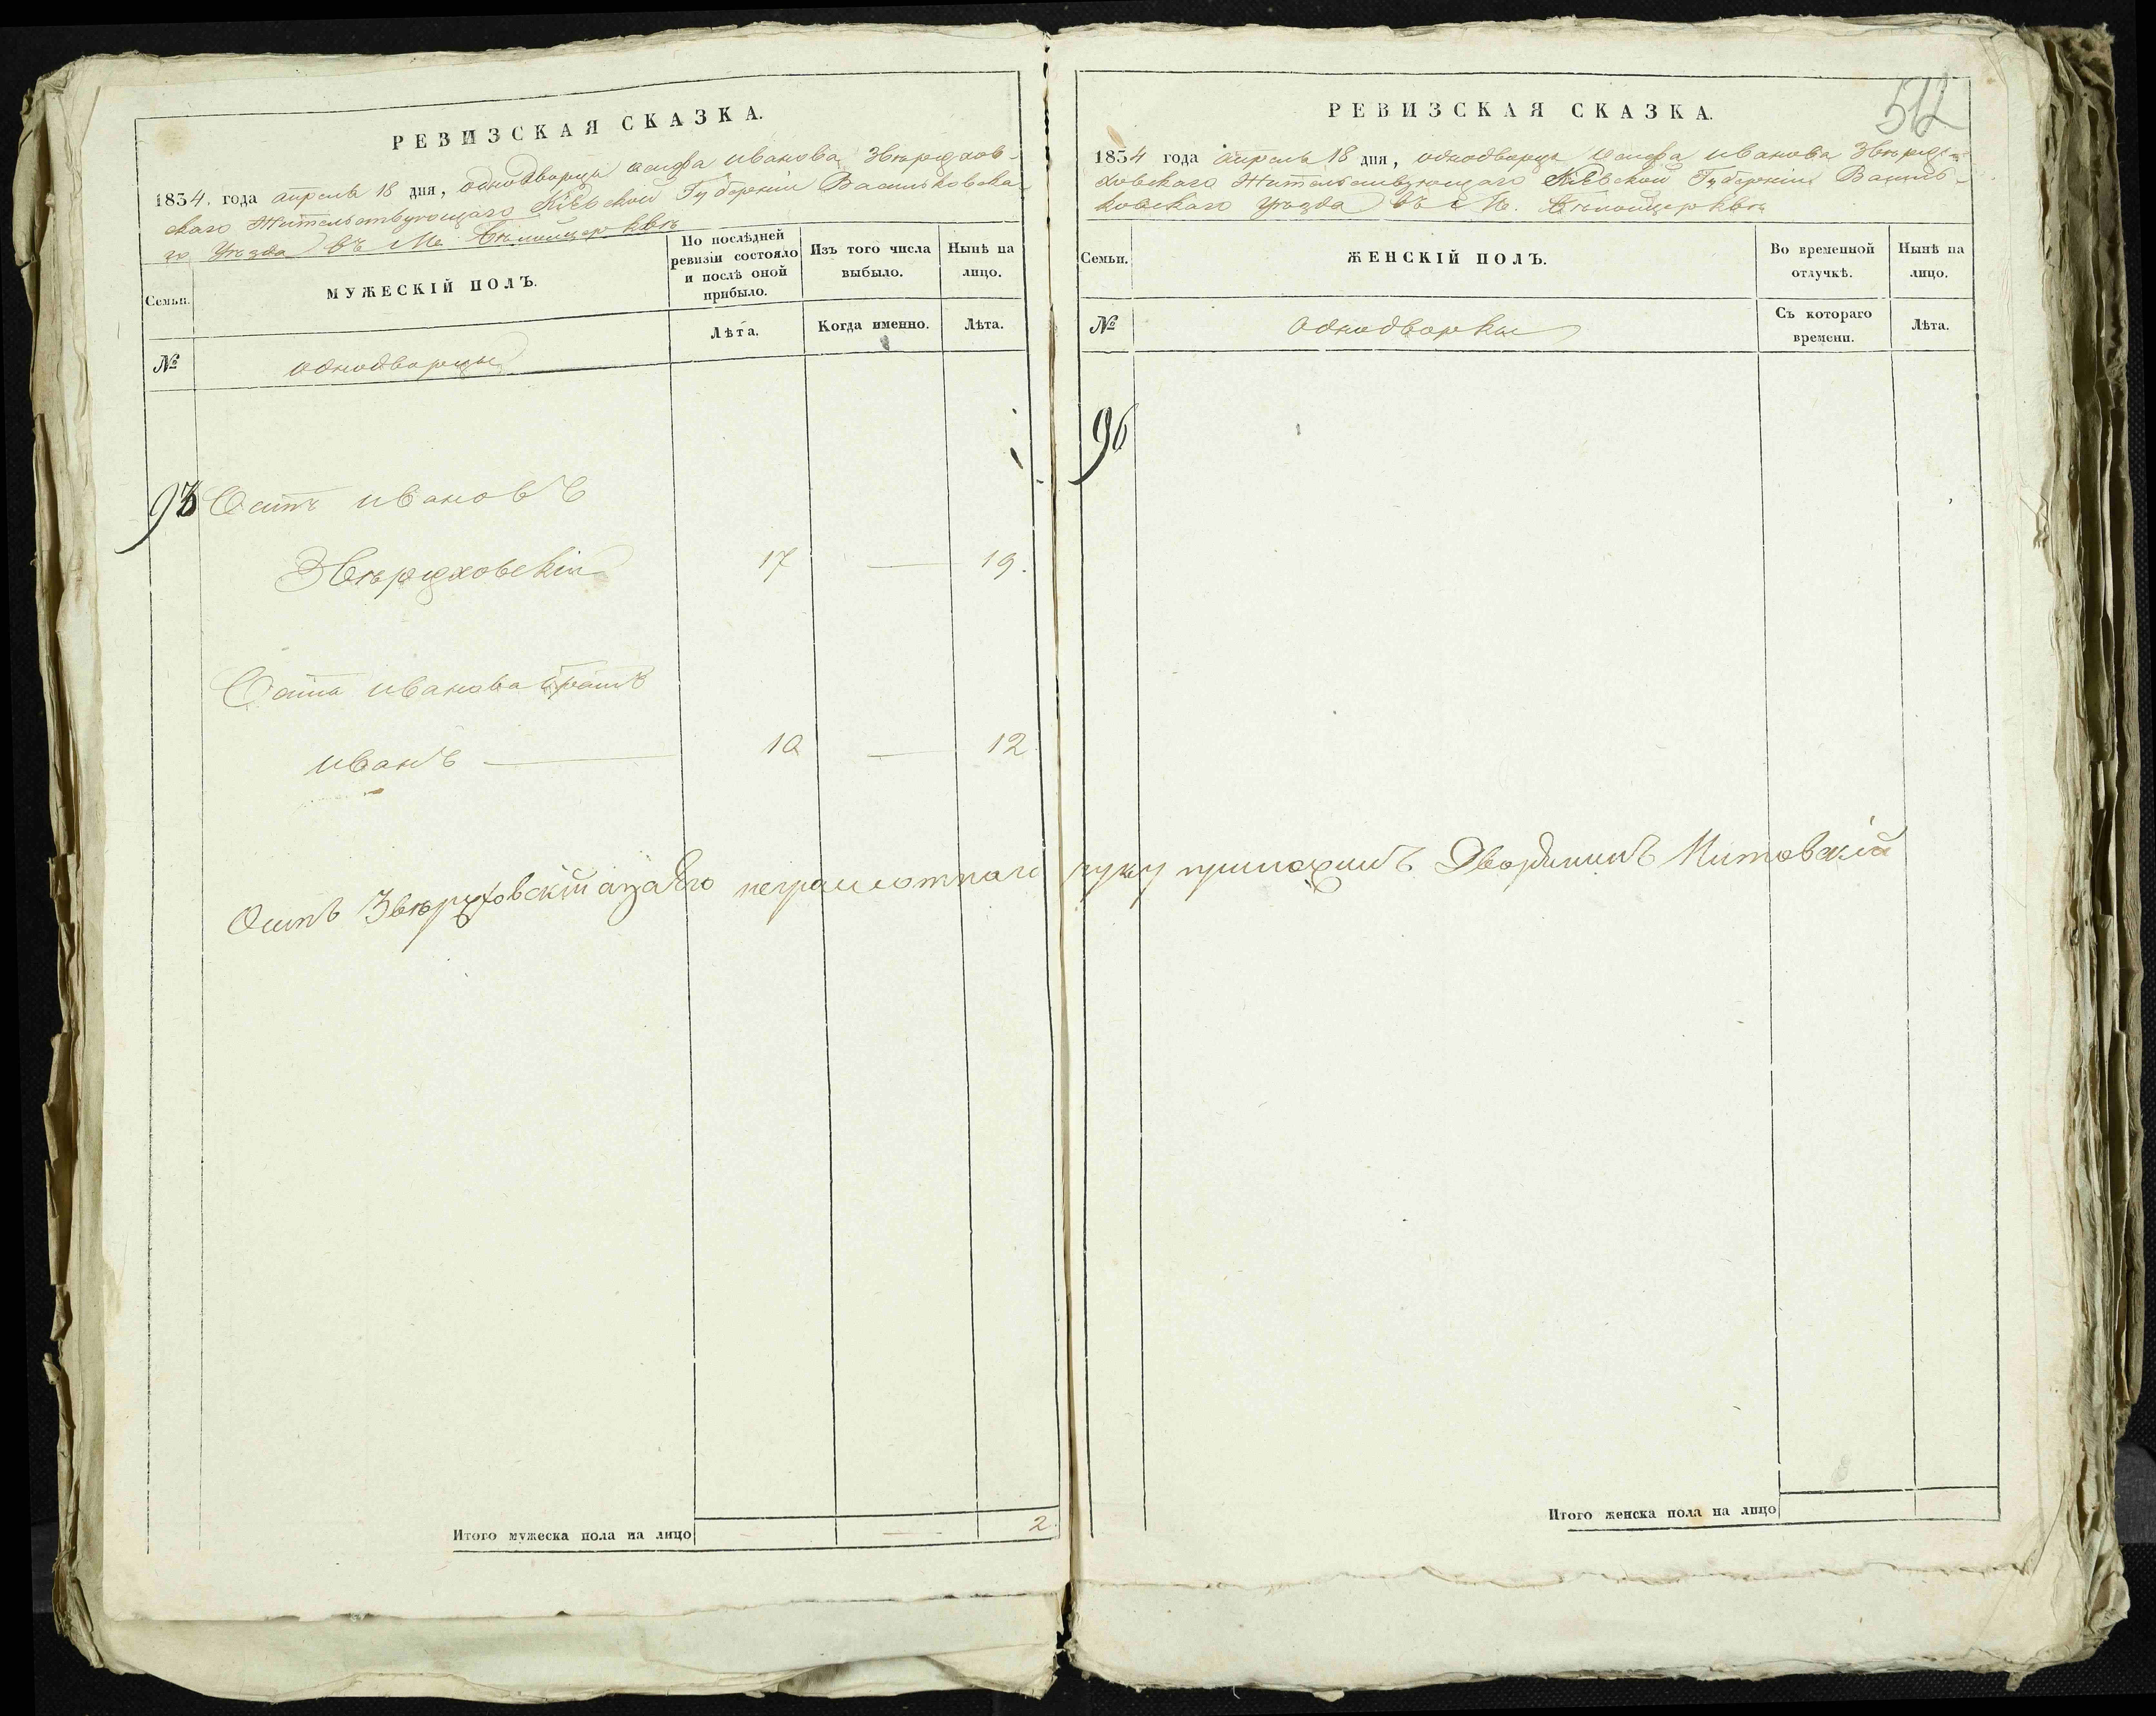 РЕВИЗСКАЯ СКАЗКА.
1834. года апреля 18 дня, однодворца Іосифа Иванова Звѣржхов-
скаго Жительствующаго Кіевской Губерніи Васильковска
го Уезда въ М. Белойцерквѣ
Семьи.
МУЖЕСКІЙ ПОЛЪ.
По послѣдней ревизіи состояло и послѣ оной прибыло.
Изъ того числа выбыло.
Нынѣ на лицо.
№
однодворцы
Лѣта.
Когда именно.
Лѣта.
Осипъ Ивановъ
Звѣржховскій 17 — 19.
Осипа Иванова братъ
Иванъ — 10 — 12.
Осипъ Звѣржховскій а за Его неграмотнаго руку приложилъ Дворянинъ
Итого мужеска пола на лицо — — 2.
РЕВИЗСКАЯ СКАЗКА.
1834 года апреля 18 дня, однодворца Іосифа Иванова Звѣрж-
ховскаго Жительствующаго Кіевской Губерніи Василь-
ковскаго Уезда въ М. Белойцерквѣ
Семьи.
ЖЕНСКІЙ ПОЛЪ.
Во временной отлучкѣ.
Нынѣ на лицо.
№
Однодворки
Съ котораго времени.
Лѣта.
96
Итого женска пола на лицо